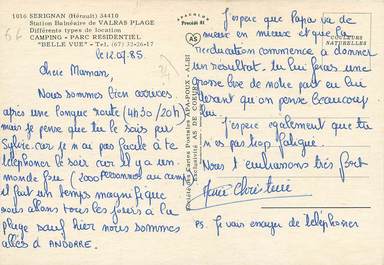 1016 SERIGNAN (Hérault) 34410
Station Balnéaire de VALRAS PLAGE
Différents types de location
CAMPING - PARC RESIDENTIEL
"BELLE VUE" - Tel. (67) 32-26-17
66
le 12.07.85.
Chère Maman,
Nous sommes bien arrivés
après une longue route (4h30/20h)
mais je pense que tu le sais par
Sylvie car je n'ai pas facile à te
téléphoner le soir car il y a un
monde fou (2000 personnes au camp)
il fait un temps magnifique
nous allons tous les jours à la
plage sauf hier nous sommes
allés à ANDORE.
Procédé
AS
Société des Cartes Postales APA-POUX - ALBI
Exclusivité AS DE COEUR
COULEURS
NATURELLES
J'espère que Papa va de
mieux en mieux et que la
rééducation commence à donner
un résultat. tu lui feras une
grosse bise de notre part en lui
disant qu'on pense beaucoup
à lui.
J'espère également que tu
n'es pas trop fatiguée.
Nous t'embrassons très fort
PS. Je vais essayer de téléphoner